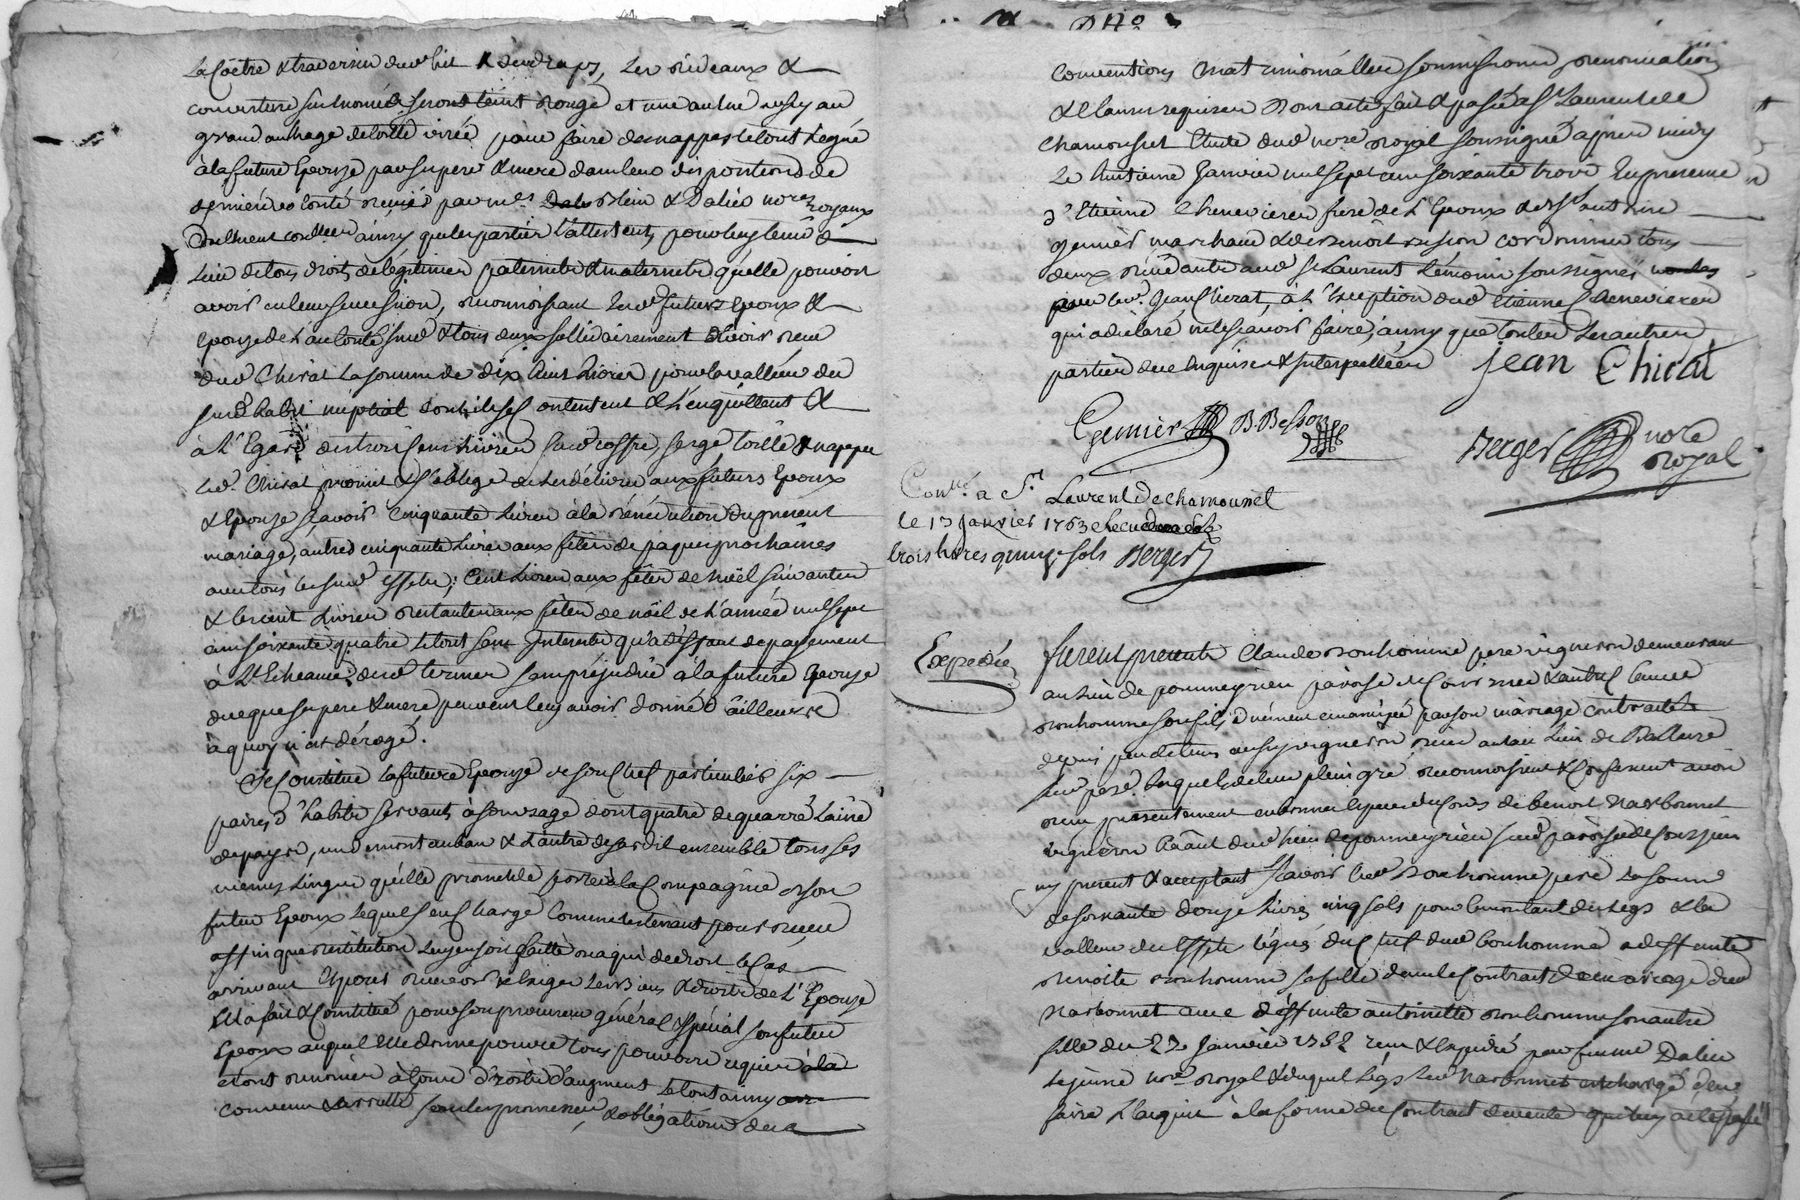 La Coëtre & traversin dud. lit & deux draps, les rideaux &
couverture susnomés seront teint rouge et une autre
grand aunage de toille pour faire des nappes le tout légué
à la future Epouse par sa pere & mere dans leurs dispositions de
derniere volonté reçües par mes & Dalies nores royaux
dûement controllées ainsy que les parties l'attestent, pour luy tenir &
lieu de tous droits de légitimes paternels & maternels qu'elle pouvoit
avoir en leur succession, reconnoissant lesd. futurs epoux &
epouse de l'autorité susd. & tous deux sollidairement avoir reçu
dud. Chirat la somme de dix huit livres pour la valleur du
susd. habit nuptial dont ils se contentent & l'en quittent &
à l'Egard des trois cens livres susd. coffre, serge toille & nappes
led. Chirat promet & s'oblige de les délivrer aux futurs Epoux
& Epouse sçavoir cinquante livres à la bénédiction du present
mariage, autres cinquante livres aux fêtes de paques prochaines
avec tous les susd. effets; Cent livres aux fêtes de Noël suivantes
& les cent livres restantes aux fêtes de nôël de l'année mil sept
cent soixante quatre le tout sans interets qu'a deffaut de payement
à L'Echeance dud. termes sans préjudice à la future Epouse
de ce que ses pere & mere peuvent luy avoir donné d'ailleurs
à quoy n'est dérogé.
Se Constitue la future Epouse de son Chef particulier six
paires d'habits servants à son usage dont quatre de quarré laine
de pays, un de montauban & l'autre de cardil ensemble tous ses
menus Linges qu'elle promet de porter à la Compagnie de son
futur Epoux lequel s'en charge Comme les tenant pour reçus
affin que restitution luy en soit faitte ou a qui de droit le Cas
arrivant & pour recevoir & exiger les biens & droits de L'Epouse
Elle a fait & Constitué pour son procureur général & spécial son futur
Epoux auquel elle donne pouvoir tous pouvoirs requis à la
et ont renoncé à tous droits d'augment le tout ainsy
convenu & arrêté sous les promesses, & obligations des
conventions matrimonialles soumissions renonciations
& clauses requises Dont acte fait & passé a St Laurent de
Chamousset Etude dud. nore royal soussigné apres midy
Le huitieme Janvier mil sept cent soixante trois En presence
d'Etienne Chenevieres frere de L'Epoux & de Sr antoine
Gernier marchand & de benoit besson cordonnier tous
deux résidants aud. St Laurent témoins soussignés
avec led. Jean Chirat, à l'Exception dud. etienne Chenevieres
qui a déclaré ne sçavoir faire, ainsy que toutes les autres
parties de ce Enquises & interpellées
Jean Chirat
Gernier B. Besson
Berger nore
royal
Conlé. a St. Laurent De chamousset
le 17 janvier 1763
trois livres quinze sols Berger
Expediée
furent presents Claude bonhomme pere vigneron demeurant
au lieu de pommeyrieu paroise de Courzieu & autre
bonhomme son fils, duëment emancipé par son mariage contracté
depuis peu de tems aussy vigneron au lieu de
sud. pere. Lesquels de leur plein gré reconnoissent & Confessent avoir
reçu presentement de benoit Narbonnet
vigneron héant dud. lieu de pommeyrieu susd. paroise de Courzieu
icy present & acceptant Sçavoir led. Bonhomme pere La somme
de soixante douze livres cinq sols pour le montant du Legs & la
valleur des Effets légués du Chef dud. bonhomme a deffunte
benoite bonhomme sa fille dans le Contrat de mariage dud.
Narbonnet avec deffunte antoinette bonhomme son autre
fille du 22 Janvier 1752 reçu & expedié par feu me Dalies
le jeune nore royal & duquel Légs led. Narbonnet
faire L'acquit à la forme du Contrat de vente